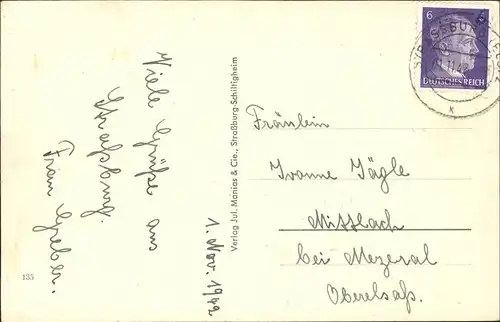 Viele Grüße aus
Straßburg.
Frau Greber.
1. Nov. 1942
Verlag Jul. Manias & Cie., Straßburg-Schiltigheim
135
6
DEUTSCHES REICH
Fräulein
Ivonne Jägle
Mittlach
bei Mezeral
Oberelsaß.